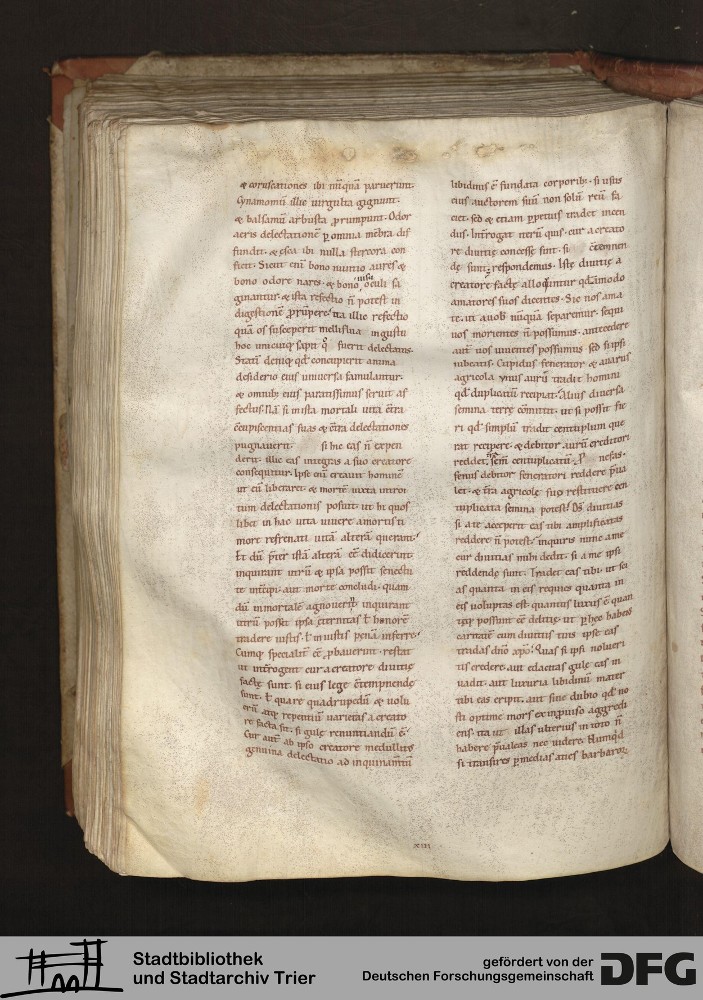 & coruscationes ibi nūquā paruerunt.
Cynamomū illic uirgulta gignunt.
& balsamū arbusta prorumpunt. Odor
aeris delectationē p omnia mēbra dif
fundit. & esca ibi nulla stercora con
ficit. Sicut enī bono nuntio aures &
bono odore nares. & bono uisu oculi sa
ginantur. & ista refectio ñ potest in
digestionē prūpere. ita illic refectio
quā os susceperit melliflua in gustu
hoc unicuiq; sapit qͦ fuerit delectatus.
Statī deniq; qd concupierit anima
desiderio eius uniuersa famulantur.
& omnib; eius paratissimus seruit af
fectus. Nā si in ista mortali uita cōtra
ccupiscentias suas & cōtra delectationes
pugnauerit si hic eas ñ expen
derit. illic eas integras a suo creatore
consequitur. Ipse enī creauit hominē
ut eū liberaret. & mortē iuxta introi
tum delectationis posuit. ut hi quos
libet in hac uita uiuere amoris ti
more refrenati uitā alterā querant.
Et dū pter istā alterā eē didicerint
inquirant utrū & ipsa possit senectu
te incipi aut morte concludi. quam
dū inmortalē agnouerint inquirant
utrū possit ipsa eternitas ł honorē
tradere iustis. ł iniustis penā inferre.
Cumq; specialit eē pbauerint. restat
ut interogent cur a creatore diuitię
factę sunt. si eius lege cōtempnendę
sunt. ł quare quadrupedū & uolu
crū atq; repentiū uarietas a creato
re facta sit. si gulę renuntiandū ē.
Cur aut ab ipso creatore medullitus
genuina delectatio ad inquinamtū
libidinis ē fundata corporib;. si usus
eius auctorem suū non solū reū fa
ciet. sed & etiam ppetuis tradet incen
diis. Interrogat iterū quis. cur a creato
re diuitię concessę sunt. si cōtemnen
dę sunt; respondemus. Istę diuitię a
creatore factę alloquntur qdāmodo
amatores suos dicentes. Sic nos ama
te. ut a uobis nūquā separemur. sequi
uos morientes ñ possumus. antecedere
aut uos uiuentes possumus sed si ipsi
iubeatis. Cupidus fenerator & auarus
agricola. Vnus aurū tradit homini
qd duplicatū recipiat. Alius diuersa
semina terrę cōmittit. ut si possit fie
ri qd simplū tradit centuplum que
rat recipere. & debitor aurū creditori
reddet. semē centuplicatū nefas.
Senus debitor feneratori reddere pua
let. & tra agricolę suę restituere cen
tuplicata semina potest. Ds diuitias
si a te acceperit eas tibi amplificatas
reddere ñ potest. inquiris nunc a me
cur diuitias mihi dedit. si a me ipsi
reddendę sunt. Tradet eas tibi. ut sci
as quanta in eis requies quanta in
eis uoluptas est. quantus luxus ē quan
tęq; possunt eē delitię. ut p hęc habeas
caritatē cum diuitiis tuis ipse eas
tradas dño xpo. Quas si ipsi nolueri
tis credere. aut edacitas gulę eas in
uadit. aut luxuria libidinū mater
tibi eas eripit. aut sine dubio qd no
sti optime mors ex inpuiso aggredi
ens. ita ut illas ulterius in toto ñ
habere pualeas nec uidere. Nūquid
si transires p medias acies barbaroꝝ
XIII
Stadtbibliothek
und Stadtarchiv Trier
gefördert von der
Deutschen Forschungsgemeinschaft
DFG